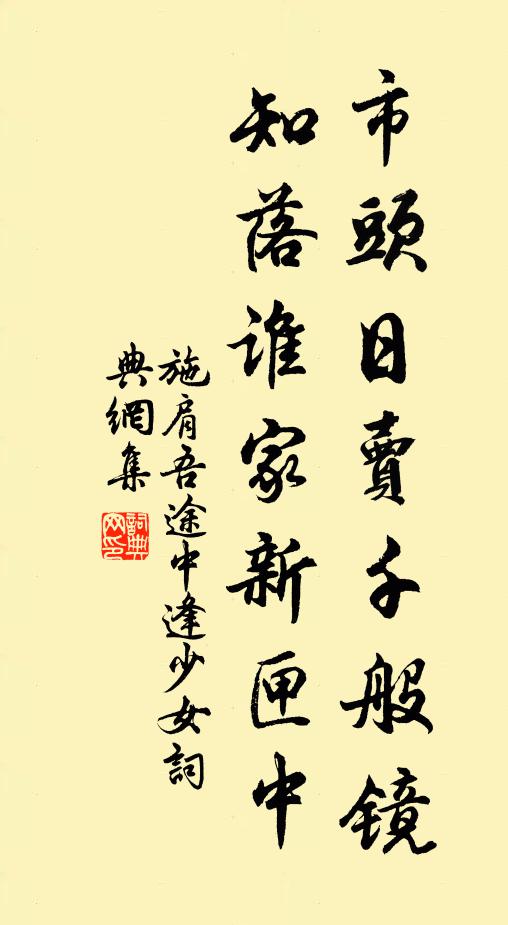 市頭日賣千般镜
知落誰家新匣中
施肩吾途中逢少女詞
典網集
詞典網印